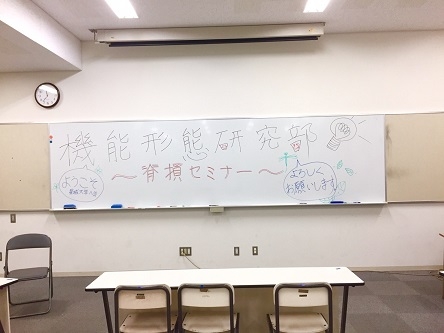 機能形態研究部
〜脊損セミナー〜
ようこそ
よろしく
お願いします